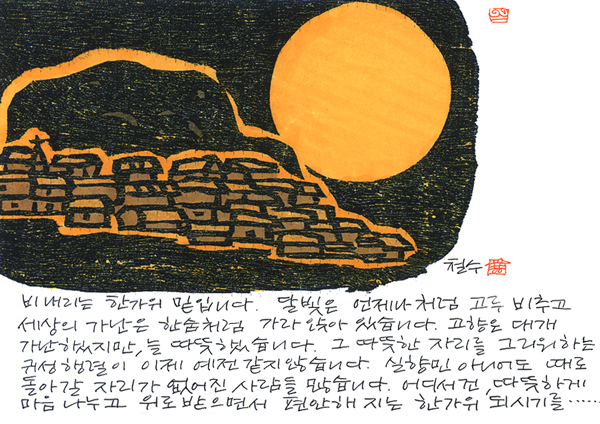 철수
비 내리는 한가위 밑입니다. 달빛은 언제나처럼 고루 비추고
세상의 가난은 한숨처럼 가라앉아 있습니다. 고향은 대개
가난했지만, 늘 따뜻했습니다. 그 따뜻한 자리를 그리워하는
귀성행렬이 이제 예전 같지않습니다. 실향민 아니어도 때로
돌아갈 자리가 없어진 사람들 많습니다. 어디서건, 따뜻하게
마음 나누고 위로 받으면서 편안해 지는 한가위 되시기를……